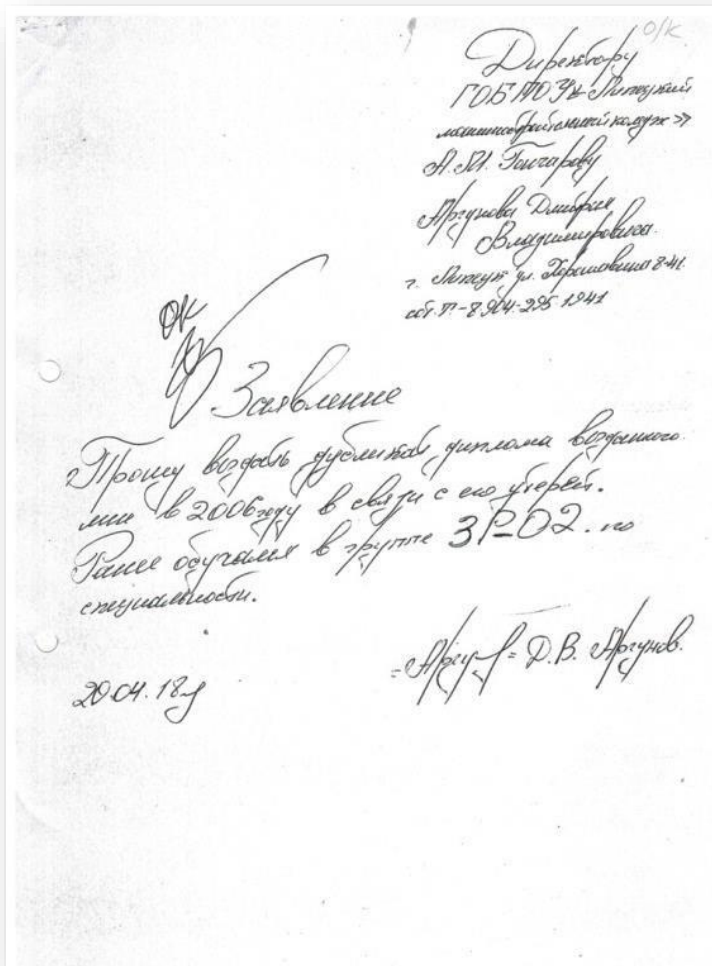 О/К
Директору
ГОБПОУ «Липецкий
машиностроительный колледж»
А.М. Гончарову
Аргунова Дмитрия
Владимировича.
г. Липецк ул. 8-41.
сот.т.-8.904.295.1941
ОК
Заявление
Прошу выдать дубликат диплома выданного
мне в 2006году в связи с его утерей.
Ранее обучался в группе ЗР-02. по
специальности.
Д.В. Аргунов.
20.04.18г